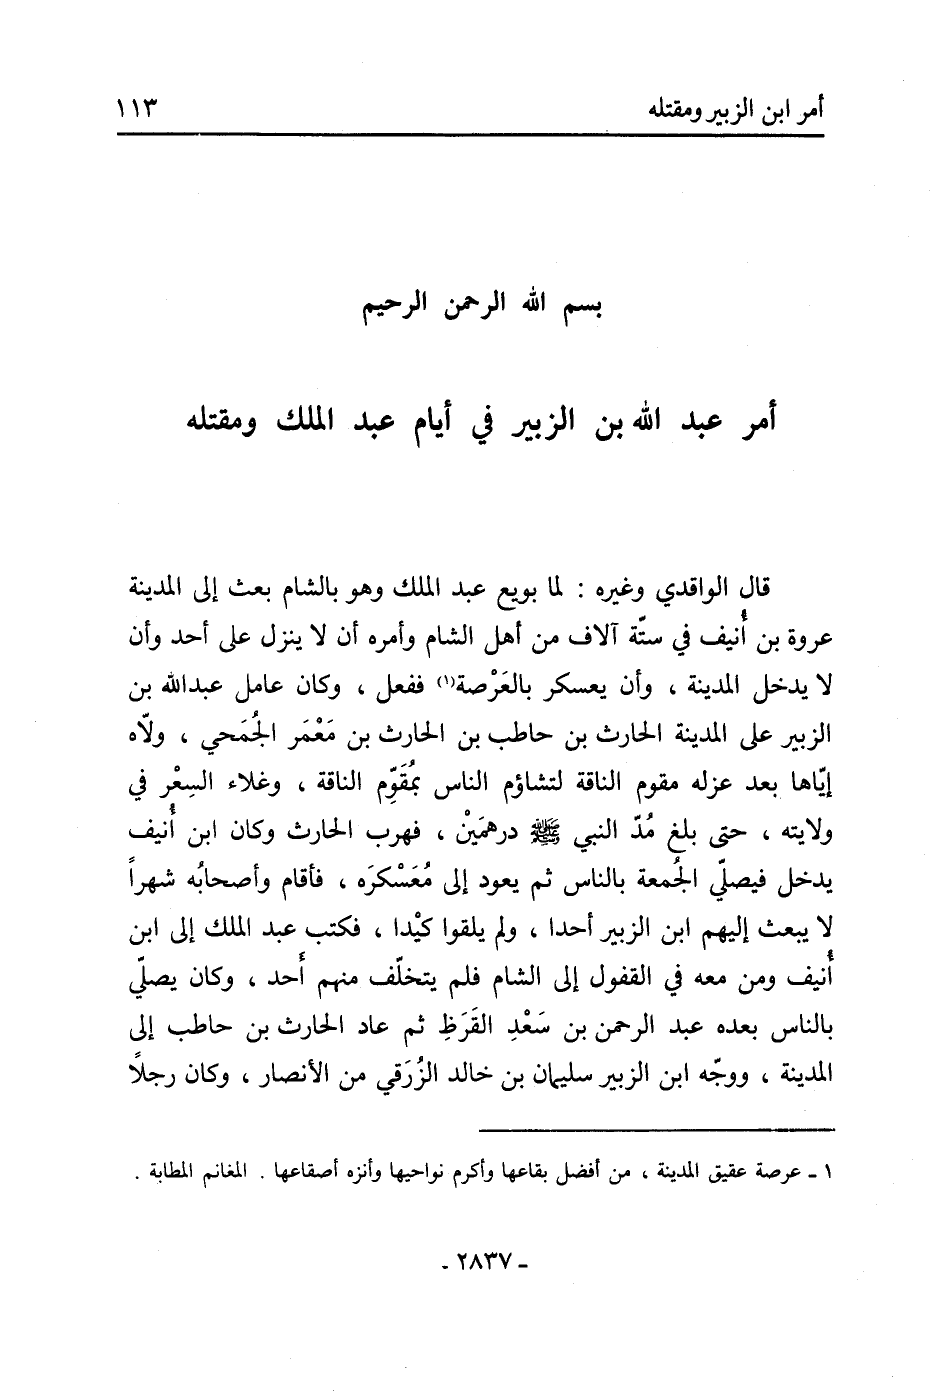 أمر ابن الزبير ومقتله ١١٣
بسم الله الرحمن الرحيم
أمر عبد الله بن الزبير في أيام عبد الملك ومقتله
قال الواقدي وغيره : لما بويع عبد الملك وهو بالشام بعث إلى المدينة
عروة بن أُنيف في ستّة آلاف من أهل الشام وأمره أن لا ينزل على أحد وأن
لا يدخل المدينة ، وأن يعسكر بالعَرْصة(١) ففعل ، وكان عامل عبدالله بن
الزبير على المدينة الحارث بن حاطب بن الحارث بن مَعْمَر الجُمَحي ، ولّاه
إيّاها بعد عزله مقوم الناقة لتشاؤم الناس بمُقَوِّم الناقة ، وغلاء السِعْر في
ولايته ، حتى بلغ مُدّ النبي ﷺ درهمَيْن ، فهرب الحارث وكان ابن أُنيف
يدخل فيصلّي الجُمعة بالناس ثم يعود إلى مُعَسْكرَه ، فأقام وأصحابُه شهراً
لا يبعث إليهم ابن الزبير أحدا ، ولم يلقوا كيْدا ، فكتب عبد الملك إلى ابن
أُنيف ومن معه في القفول إلى الشام فلم يتخلّف منهم أَحد ، وكان يصلّي
بالناس بعده عبد الرحمن بن سَعْدِ القَرَظِ ثم عاد الحارث بن حاطب إلى
المدينة ، ووجّه ابن الزبير سليمان بن خالد الزُرَقي من الأنصار ، وكان رجلاً
١ - عرصة عقيق المدينة ، من أفضل بقاعها وأكرم نواحيها وأنزه أصقاعها . المغانم المطابة .
- ٢٨٣٧ -